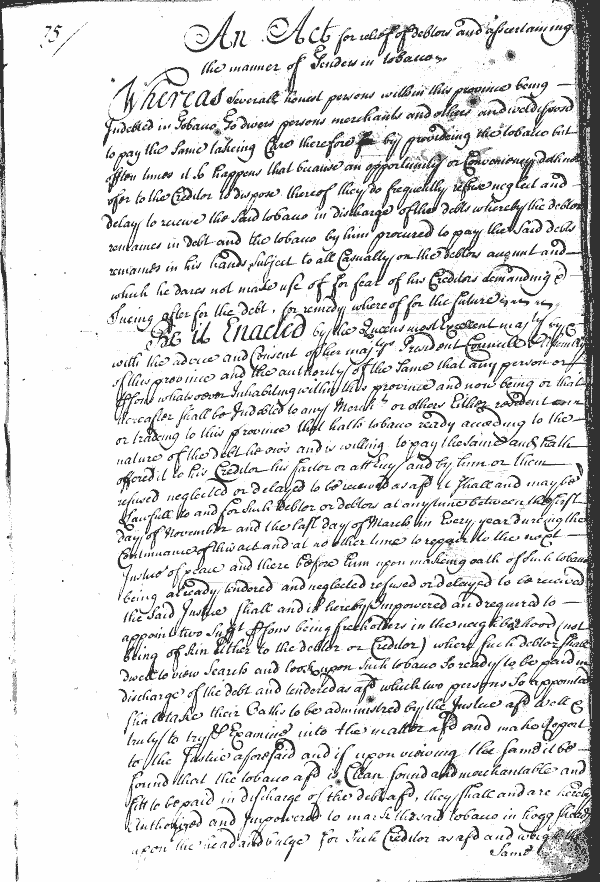 75/
An Act for relief of debtors and ascertaining
the manner of Tenders in tobacco
Whereas severall honest persons within this province being
Indebted in Tobacco To divers persons merchants and others and well disposed
to pay the same takeing Care therefore by provideing the tobacco but
often times it so happens that because an opportunity or Conveniency doth not
ofer to the Creditor to dispose thereof they do frequently refuse neglect and
delay to receive the said tobacco in discharge of the debts whereby the debtor
remaines in debt and the tobacco by him procured to pay the said debts
remaines in his hands subject to all Casualty on the debtors account and
which he dares not make use of for fear of his Creditors demanding &
Sueing after for the debt, for remedy where of for the future
Be it Enacted by the Queens most Excellent majty by &
with the advice and Consent of her majtys President Councill &
of this province and the authority of the same that any person or
psons whatsoever Inhabiting within this province and now being or that
hereafter shall be Indebted to any Mercht or others Either resident
or tradeing to this province that hath tobacco ready according to the
nature of the debt he ows and is willing to pay the same and hath
offered it to his Creditor his factor or attorney and by him or them
refused neglected or delayed to be received as afd it shall and may be
Lawfull to and for such debtor or debtors at any time between the first
day of November and the last day of March in Every year dureing the
Continuance of this act and at no other time to repair to the next
Justice of peace and there before him upon makeing oath of such tobacco
being already tendered and neglected refused or delayed to be received
the said Justice shall and is hereby Impowered and required to
appoint two Sufft psons being freeholders in the neighbourhood (not
being of kin either to the debtor or Creditor) where such debtor shall
dwell to view Search and look upon such tobacco so ready to be paid in
discharge of the debt and tendered as afd which two persons so appointed
shall take their Oaths to be administred by the Justice afd well &
truly to try & Examine into the matter afd and make Report
to the Justice aforesaid and if upon viewing the same it be
found that the tobacco afd is Clean sound and merchantable and
fitt to be paid in discharge of the debt afd, they shall and are hereby
Authorized and Impowered to mark the said tobacco in hogsheads
upon the head and bulge for such Creditor as afd and weigh the
Same